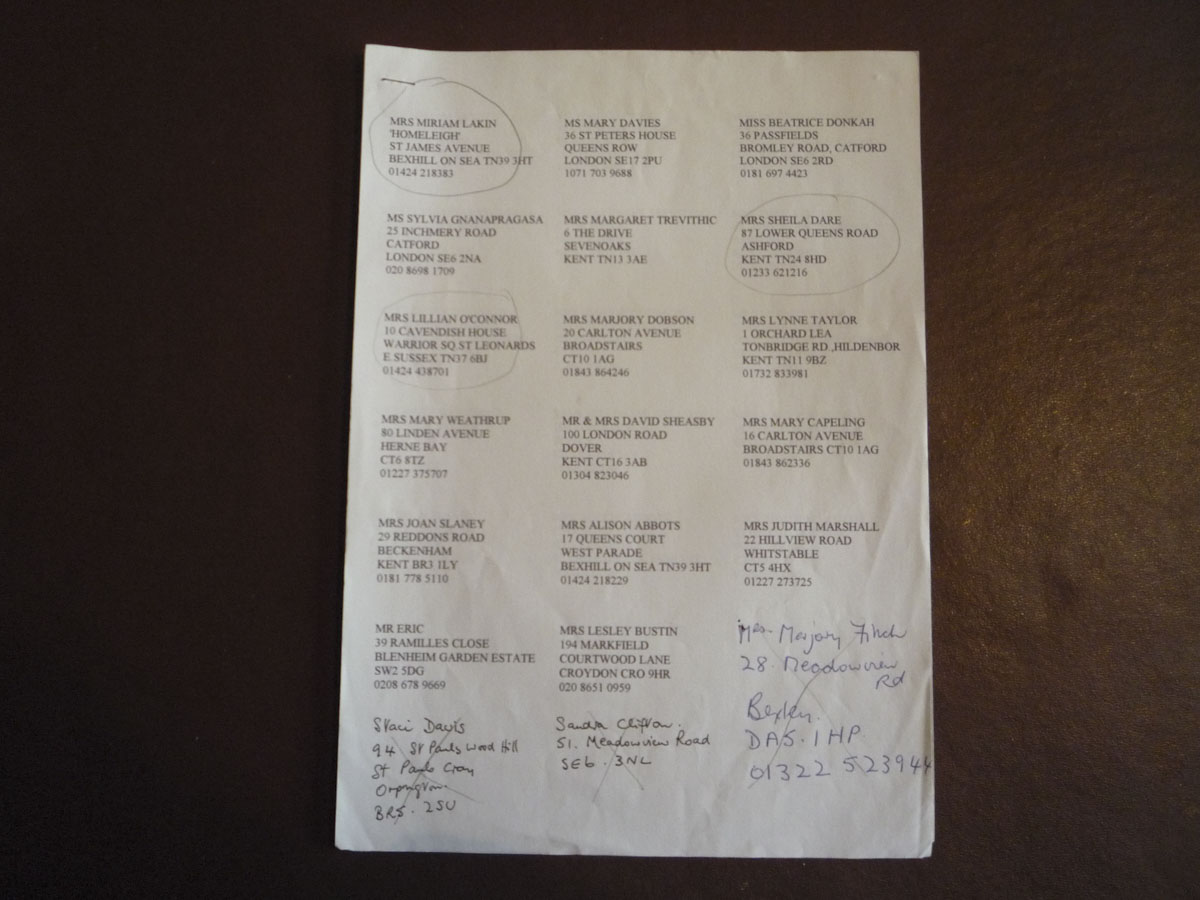 MRS MIRIAM LAKIN
'HOMELEIGH'
ST JAMES AVENUE
BEXHILL ON SEA TN39 3HT
01424 218383
MS MARY DAVIES
36 ST PETERS HOUSE
QUEENS ROW
LONDON SE17 2PU
1071 703 9688
MISS BEATRICE DONKAH
36 PASSFIELDS
BROMLEY ROAD, CATFORD
LONDON SE6 2RD
0181 697 4423
MS SYLVIA GNANAPRAGASA
25 INCHMERY ROAD
CATFORD
LONDON SE6 2NA
020 8698 1709
MRS MARGARET TREVITHIC
6 THE DRIVE
SEVENOAKS
KENT TN13 3AE
MRS SHEILA DARE
87 LOWER QUEENS ROAD
ASHFORD
KENT TN24 8HD
01233 621216
MRS LILLIAN O'CONNOR
10 CAVENDISH HOUSE
WARRIOR SQ ST LEONARDS
E SUSSEX TN37 6BJ
01424 438701
MRS MARJORY DOBSON
20 CARLTON AVENUE
BROADSTAIRS
CT10 1AG
01843 864246
MRS LYNNE TAYLOR
1 ORCHARD LEA
TONBRIDGE RD ,HILDENBOR
KENT TN11 9BZ
01732 833981
MRS MARY WEATHRUP
80 LINDEN AVENUE
HERNE BAY
CT6 8TZ
01227 375707
MR & MRS DAVID SHEASBY
100 LONDON ROAD
DOVER
KENT CT16 3AB
01304 823046
MRS MARY CAPELING
16 CARLTON AVENUE
BROADSTAIRS CT10 1AG
01843 862336
MRS JOAN SLANEY
29 REDDONS ROAD
BECKENHAM
KENT BR3 1LY
0181 778 5110
MRS ALISON ABBOTS
17 QUEENS COURT
WEST PARADE
BEXHILL ON SEA TN39 3HT
01424 218229
MRS JUDITH MARSHALL
22 HILLVIEW ROAD
WHITSTABLE
CT5 4HX
01227 273725
MR ERIC
39 RAMILLES CLOSE
BLENHEIM GARDEN ESTATE
SW2 5DG
0208 678 9669
MRS LESLEY BUSTIN
194 MARKFIELD
COURTWOOD LANE
CROYDON CRO 9HR
020 8651 0959
Mrs. Marjory Finch
28. Meadowview
Rd
Bexley.
DA5. 1HP.
01322 523944
Staci Davis
94 St Pauls Wood Hill
St Pauls Cray
Orpington.
BR5. 2SU
Sandra Clifton.
51. Meadowview Road
SE6. 3NL